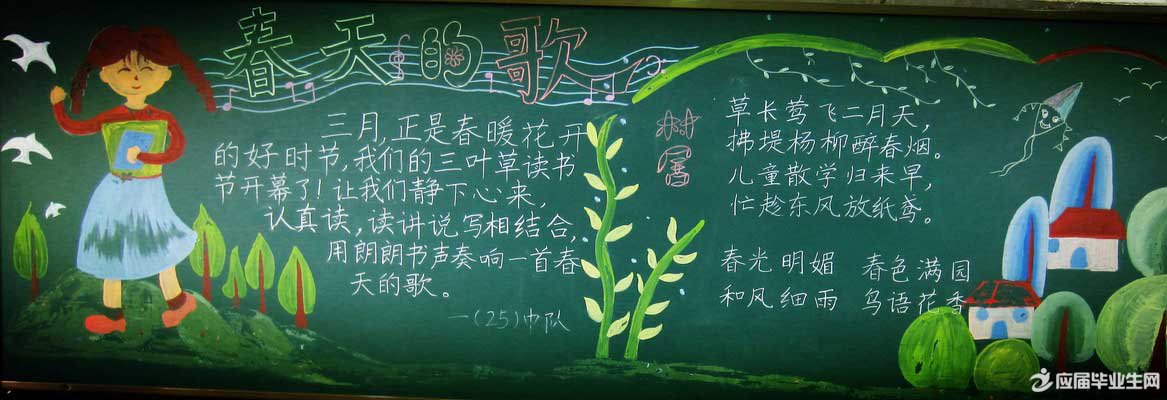 春天的歌
三月,正是春暖花开
的好时节,我们的三叶草读书
节开幕了!让我们静下心来,
认真读,读讲说写相结合,
用朗朗书声奏响一首春
天的歌。
一(25)中队
村居
草长莺飞二月天,
拂堤杨柳醉春烟。
儿童散学归来早,
忙趁东风放纸鸢。
春光明媚 春色满园
和风细雨 鸟语花香
应届毕业生网